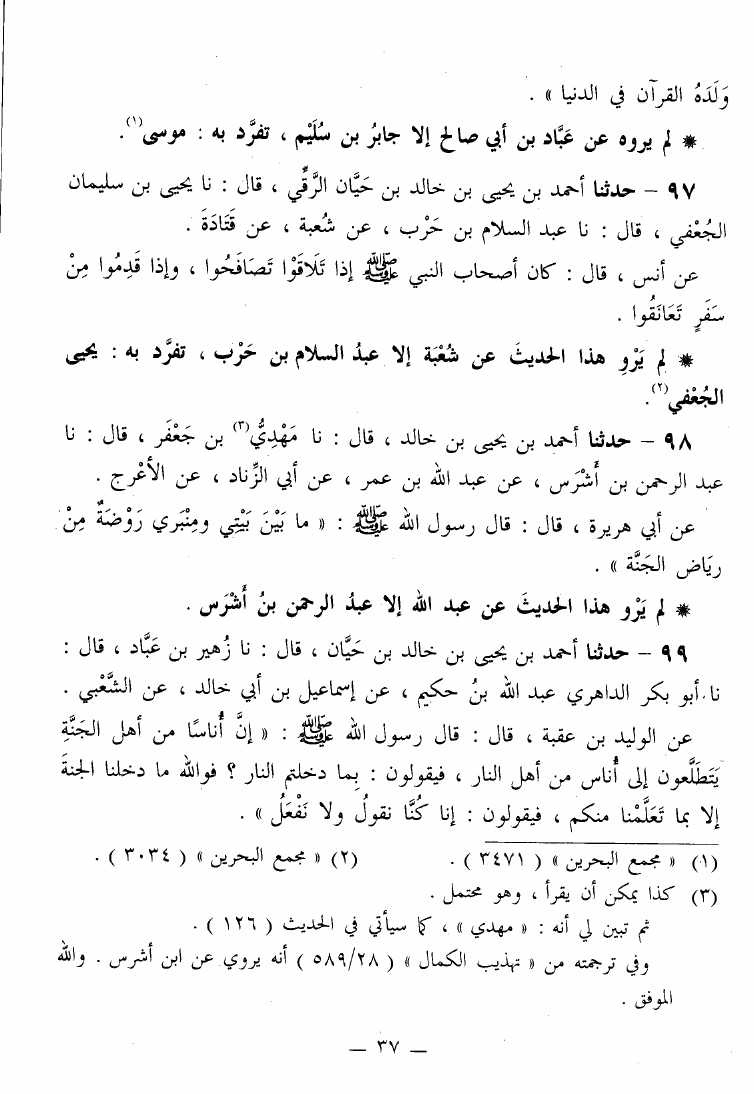 وَلَدَهُ القرآن في الدنيا » .
* لم يروه عن عَبَّاد بن أبي صالح إلا جابرُ بن سُلَيْم ، تفرَّد به : موسى(١).
٩٧ – حدثنا أحمد بن يحيى بن خالد بن حَيَّان الرَّقِّي ، قال : نا يحيى بن سليمان
الجُعْفي ، قال : نا عبد السلام بن حَرْب ، عن شُعبة ، عن قَتَادَةَ .
عن أنس ، قال : كان أصحاب النبي ﷺ إذا تَلَاقَوْا تَصَافَحُوا ، وإذا قَدِمُوا مِنْ
سَفَرٍ تَعَانَقُوا .
* لم يَرْوِ هذا الحديثَ عن شُعْبَة إلا عبدُ السلام بن حَرْب ، تفرَّد به : يحيى
الجُعْفي(٢).
٩٨ – حدثنا أحمد بن يحيى بن خالد ، قال : نا مَهْدِيُّ(٣) بن جَعْفَر ، قال : نا
عبد الرحمن بن أَشْرَس ، عن عبد الله بن عمر ، عن أبي الزِّناد ، عن الأعْرج .
عن أبي هريرة ، قال : قال رسول الله ﷺ : « ما بَيْنَ بَيْتِي ومِنْبَرِي رَوْضَةٌ مِنْ
رِيَاض الجَنَّة » .
* لم يَرْو هذا الحديثَ عن عبد الله إلا عبدُ الرحمن بنُ أَشْرَس .
٩٩ – حدثنا أحمد بن يحيى بن خالد بن حَيَّان ، قال : نا زُهير بن عَبَّاد ، قال :
نا أبو بكر الداهري عبد الله بنُ حكيم ، عن إسماعيل بن أبي خالد ، عن الشَّعْبي .
عن الوليد بن عقبة ، قال : قال رسول الله ﷺ : « إنَّ أُناسًا من أهل الجَنَّةِ
يَتَطَلَّعون إلى أُناس من أهل النار ، فيقولون : بِما دخلتم النار ؟ فوالله ما دخلنا الجنةَ
إلا بما تَعَلَّمْنا منكم ، فيقولون : إنا كُنَّا نقولُ ولا نَفْعَلُ » .
(١) « مجمع البحرين » ( ٣٤٧١ ) . (٢) « مجمع البحرين » ( ٣٠٣٤ ) .
(٣) كذا يمكن أن يقرأ ، وهو محتمل .
ثم تبين لي أنه : « مهدي » ، كما سيأتي في الحديث ( ١٢٦ ) .
وفي ترجمته من « تهذيب الكمال » ( ٥٨٩/٢٨ ) أنه يروي عن ابن أشرس . والله
الموفق .
— ٣٧ —